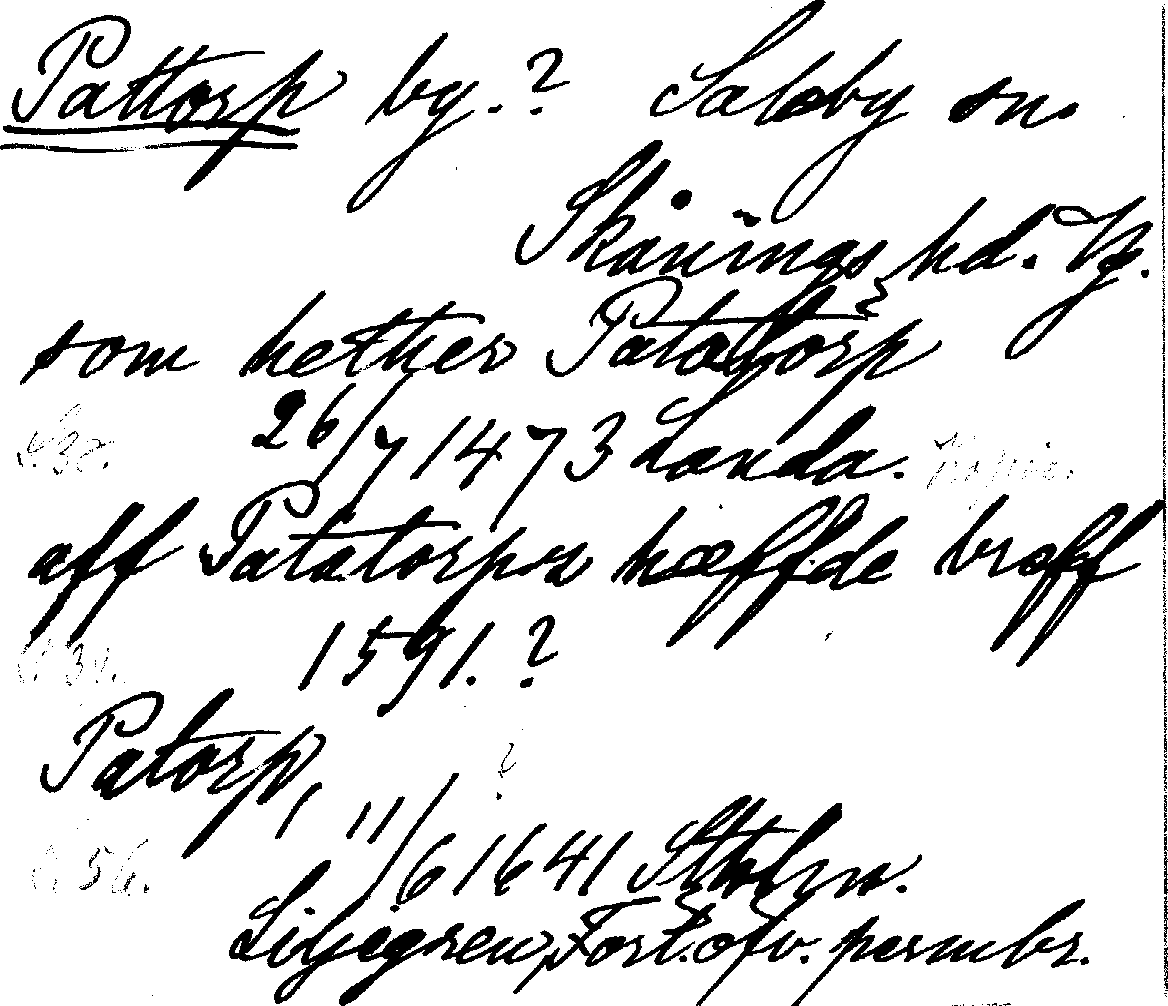 Pattorp by.? Saleby sn.
Skånings hd. Vg.
som hether Patatorp
26/7 1473 Landa. Kopia.
s. 30.
aff Patatorps hæffde breff
1591.?
s. 31.
Patorp, ?
1, 11/6 1641 Sthlm.
s. 56.
Liljegren, Fört. öfv. permbr.